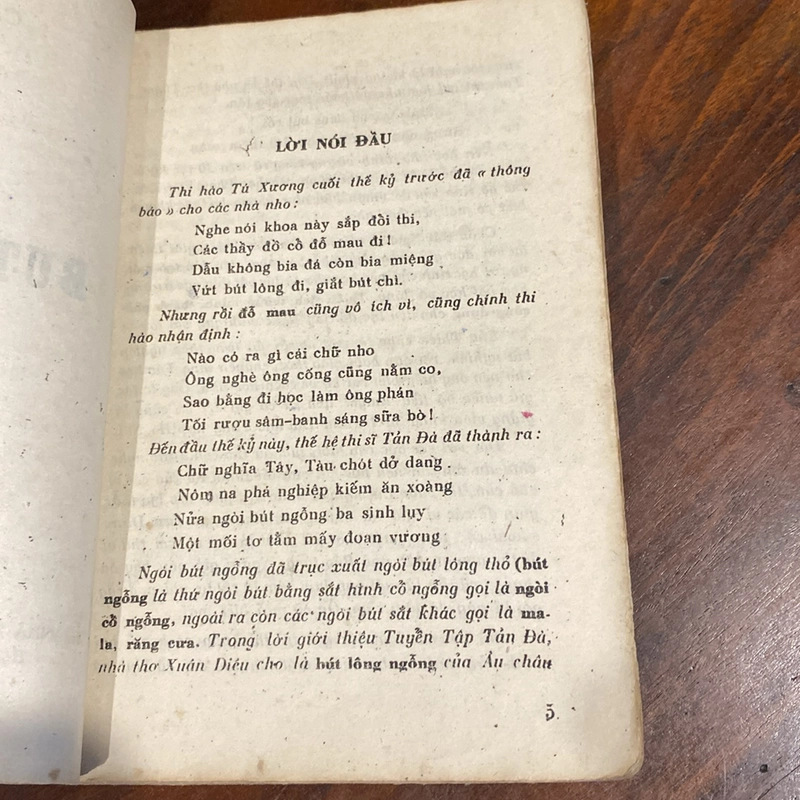 LỜI NÓI ĐẦU
Thi hào Tú Xương cuối thế kỷ trước đã « thông
báo » cho các nhà nho :
Nghe nói khoa này sắp đổi thi,
Các thầy đồ cổ đỗ mau đi !
Dẫu không bia đá còn bia miệng
Vứt bút lông đi, giắt bút chì.
Nhưng rồi đỗ mau cũng vô ích vì, cũng chính thi
hào nhận định :
Nào có ra gì cái chữ nho
Ông nghè ông cống cũng nằm co,
Sao bằng đi học làm ông phán
Tối rượu sâm-banh sáng sữa bò !
Đến đầu thế kỷ này, thế hệ thi sĩ Tản Đà đã thành ra :
Chữ nghĩa Tây, Tàu chót dở dang
Nôm na phá nghiệp kiếm ăn xoàng
Nửa ngòi bút ngỗng ba sinh lụy
Một mối tơ tằm mấy đoạn vương
Ngòi bút ngỗng đã trục xuất ngòi bút lông thỏ (bút
ngỗng là thứ ngòi bút bằng sắt hình cổ ngỗng gọi là ngòi
cổ ngỗng, ngoài ra còn các ngòi bút sắt khác gọi là ma-
la, răng cưa. Trong lời giới thiệu Tuyển Tập Tản Đà,
nhà thơ Xuân Diệu cho là bút lông ngỗng của Âu châu
5